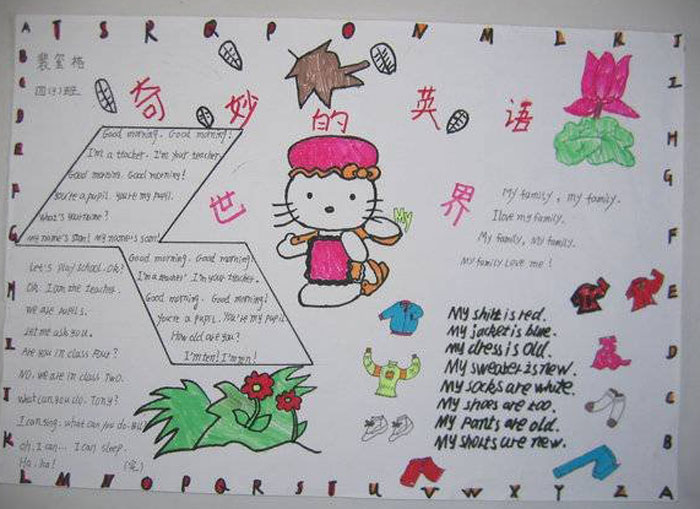 A T S R Q P O N M L K J
B
C
D
E
F
G
H
I
J
K
奇妙的英语
世界
四(3)班
Good morning. Good morning!
I'm a teacher. I'm your teacher.
Good morning. Good morning!
You're a pupil. You're my pupil.
What's your name?
My name's Sam! My name's Sam!
Good morning. Good morning.
I'm a teacher. I'm your teacher.
Good morning. Good morning!
You're a pupil. You're my pupil
How old are you?
I'm ten! I'm ten!
Let's play school. Ok?
Ok. I am the teacher.
We are pupils.
Let me ask you.
Are you in class Four?
NO. We are in class Two.
What can you do. Tony?
I can sing. what can you do. Bill
oh. I can... I can sleep.
Ha. ha!
(完)
My
My family, my family.
I love my family.
My family, My family.
My family Love me!
My shirt is red.
My jacket is blue.
My dress is old.
My sweater is new.
My socks are white.
My shoes are too.
My pants are old.
My shorts are new.
I
H
G
F
E
D
C
B
L M N O P Q R S T U V W X Y Z A